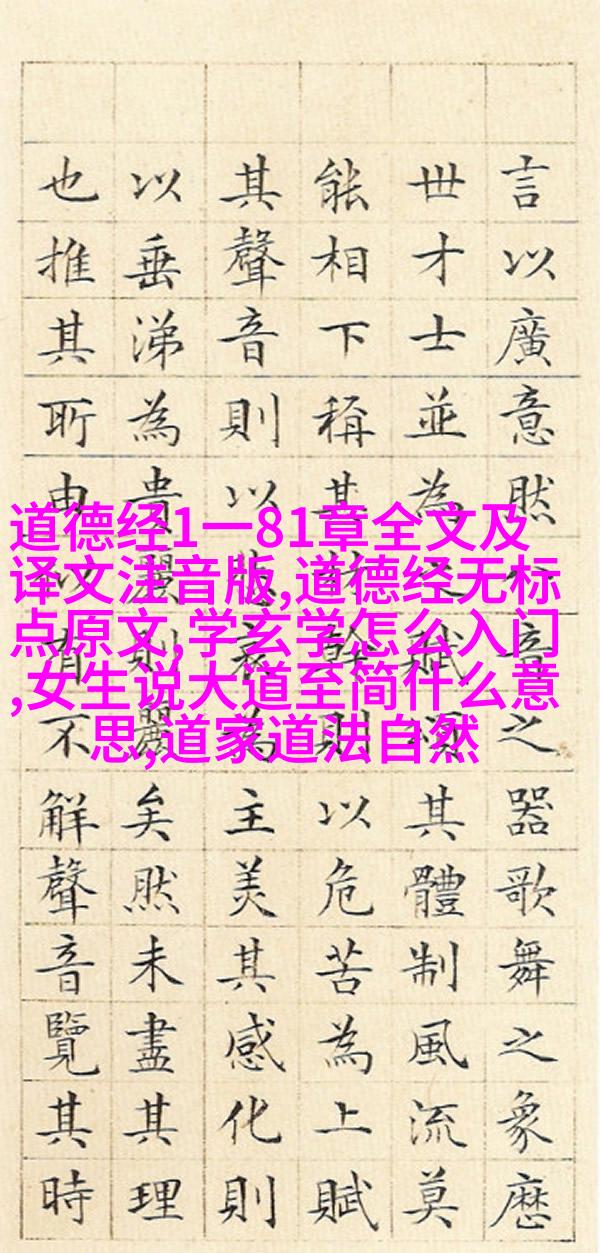 言以廣意然音之器歌舞之象歷
世才士並為賦頌其體制風流莫
能相下稱其幹則以危苦為上賦
其聲音則以哀為主美其感化則
以垂涕為貴麗則麗矣然未盡其理
也推其所由有不解聲音覽其時
道德经1一81章全文及
译文注音版,道德经无标
点原文,学玄学怎么入门
,女生说大道至简什么意
思,道家道法自然